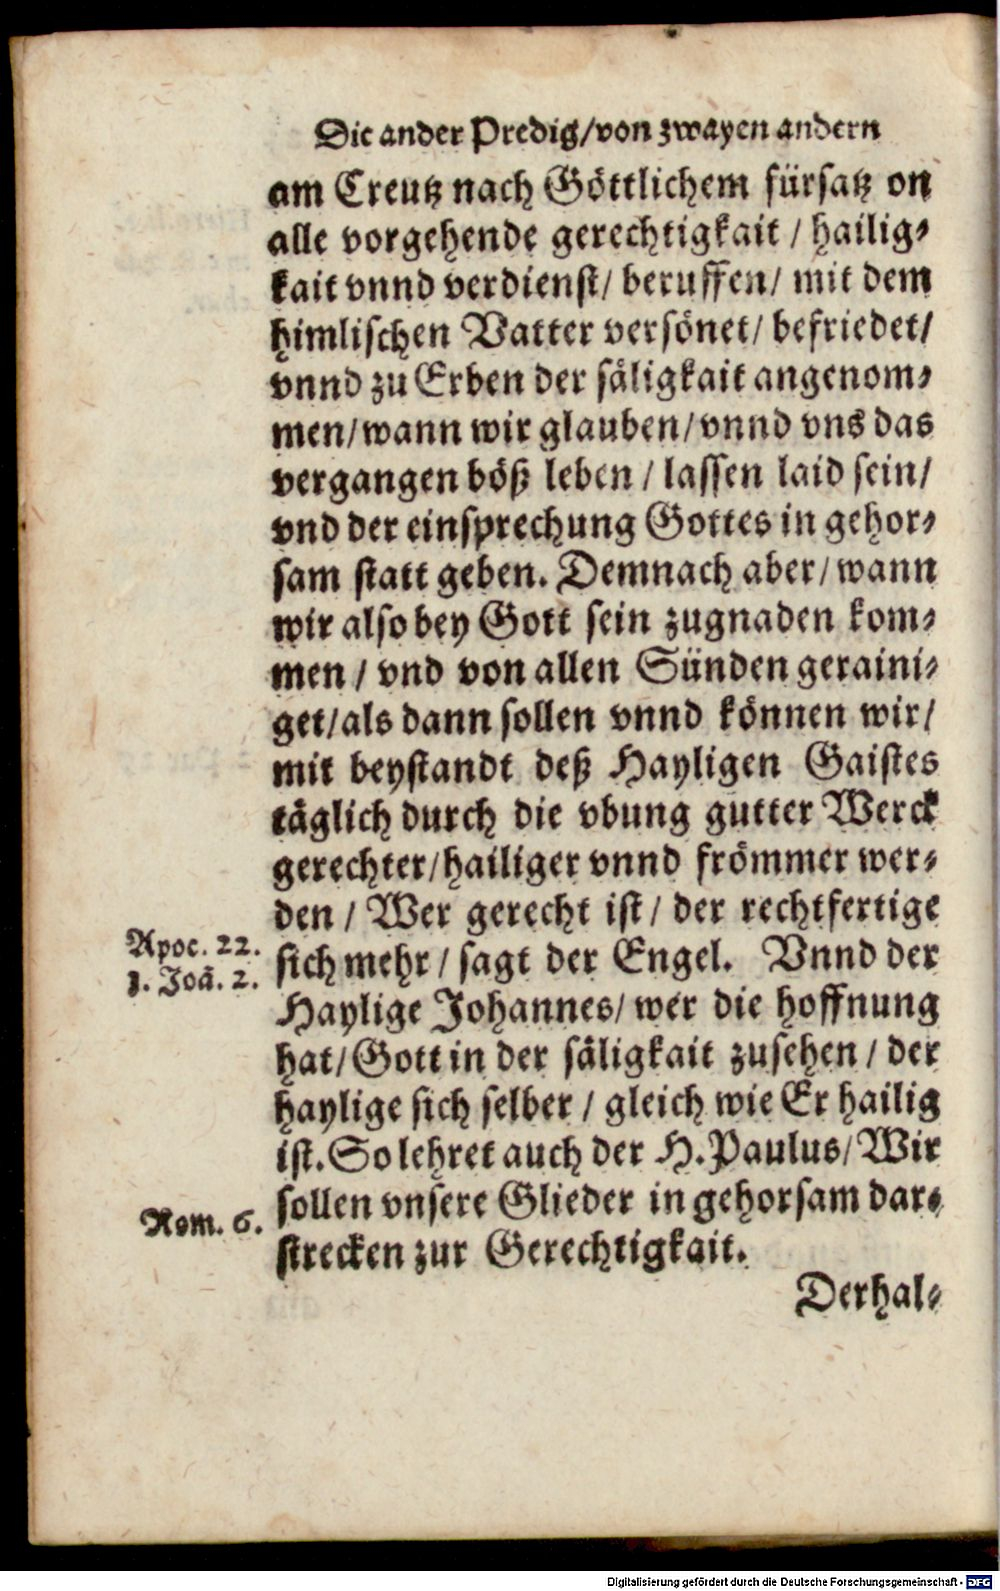 Die ander Predig/von zwayen andern
am Creutz nach Göttlichem fürsatz on
alle vorgehende gerechtigkait / hailig⸗
kait vnnd verdienst/ beruffen/ mit dem
himlischen Vatter versönet/ befriedet/
vnnd zu Erben der säligkait angenom⸗
men/wann wir glauben/vnnd vns das
vergangen böß leben / lassen laid sein/
vnd der einsprechung Gottes in gehor⸗
sam statt geben. Demnach aber/wann
wir also bey Gott sein zugnaden kom⸗
men / vnd von allen Sünden geraini⸗
get/als dann sollen vnnd können wir/
mit beystandt deß Hayligen Gaistes
täglich durch die vbung gutter Werck
gerechter/hailiger vnnd frömmer wer⸗
den / Wer gerecht ist/ der rechtfertige
Apoc. 22.
sich mehr / sagt der Engel. Vnnd der
1. Joã. 2.
Haylige Johannes/ wer die hoffnung
hat/Gott in der säligkait zusehen / der
haylige sich selber / gleich wie Er hailig
ist. So lehret auch der H. Paulus/Wir
sollen vnsere Glieder in gehorsam dar⸗
Rom. 6.
strecken zur Gerechtigkait.
Derhal⸗
Digitalisierung gefördert durch die Deutsche Forschungsgemeinschaft - DFG